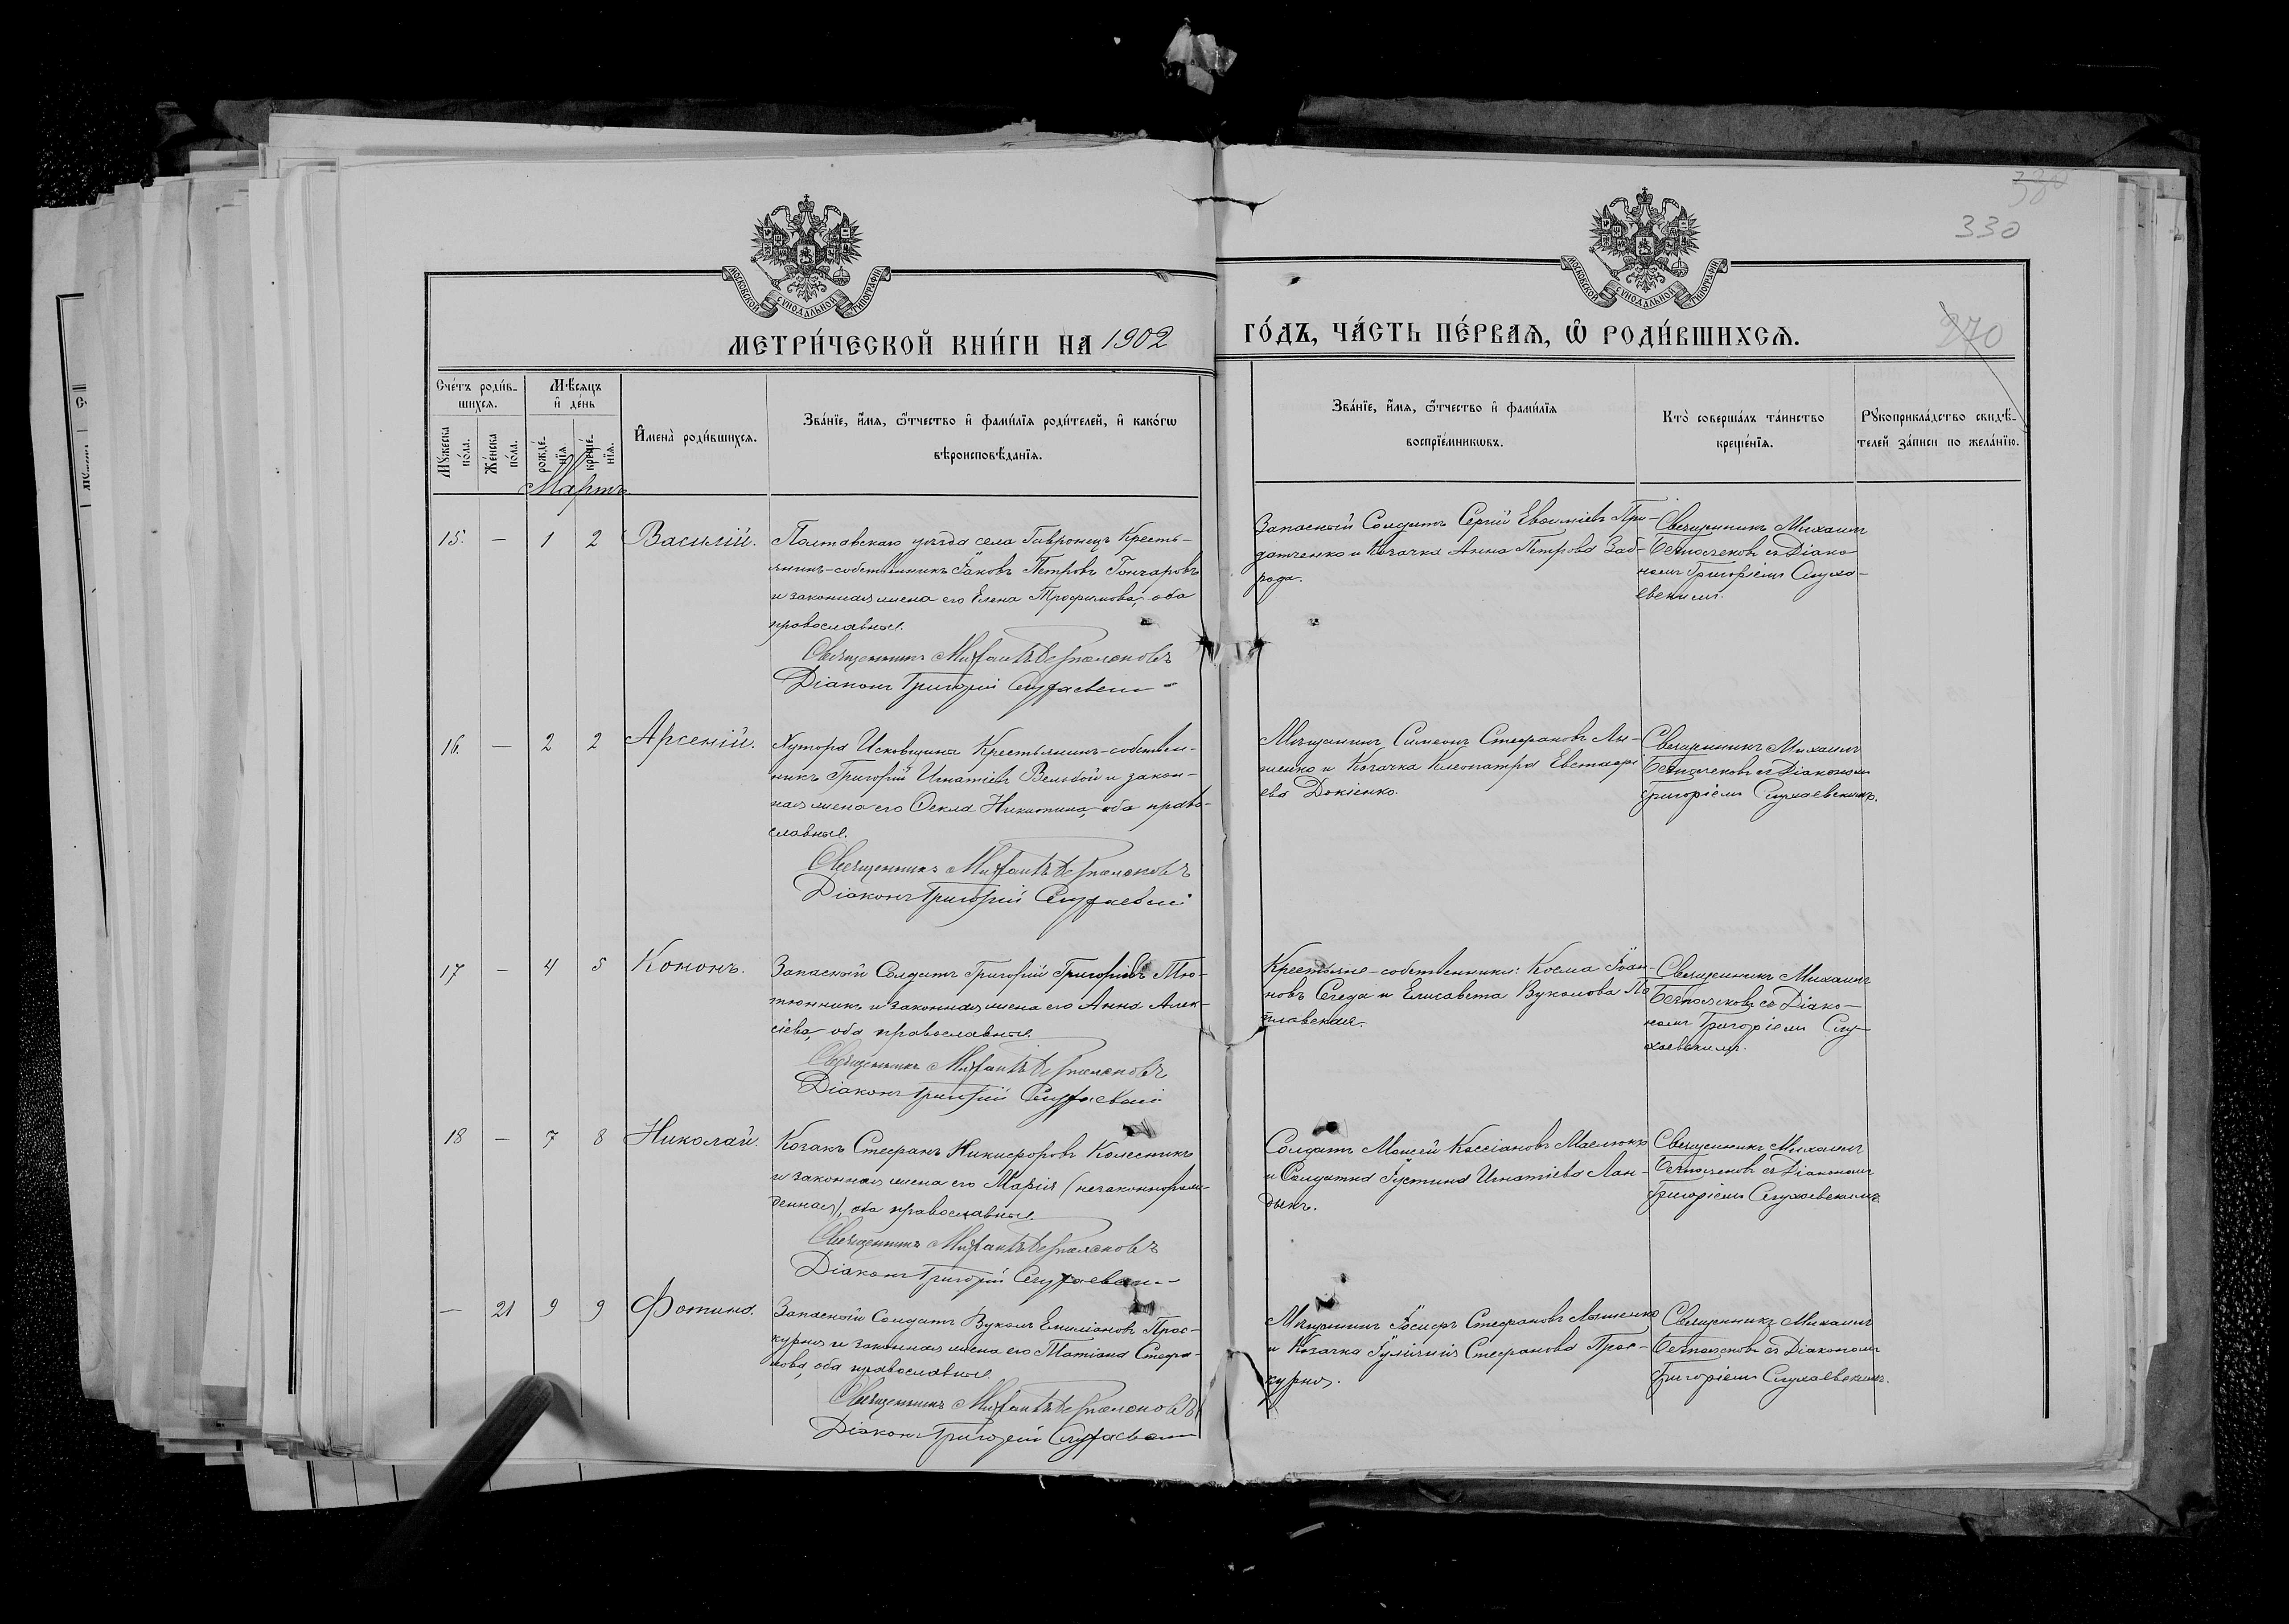 380
330
270
МОСКОВСКОЙ СѴНОДАЛЬНОЙ ТИПОГРАФІИ
МОСКОВСКОЙ СѴНОДАЛЬНОЙ ТИПОГРАФІИ
МЕТРИ́ЧЕСКОЙ КНИ́ГИ НА 1902 ГО́ДЪ, ЧА́СТЬ ПЕ́РВАЯ, Ѡ҆ РОДИ́ВШИХСЯ.
Сче́тъ роди́в-
шихся.
Мꙋ́жеска по́ла.
Же́нска по́ла.
Мѣ́сяцъ и҆ де́нь
рожде́-нїя.
креще́-нїя.
И҆мена̀ роди́вшихся.
Зва́нїе, и҆́мя, ѻ҆́тчество и҆ фами́лїя роди́телей, и҆ како́гѡ
вѣроисповѣ́данїя.
Зва́нїе, и҆́мя, ѻ҆́тчество и҆ фами́лїя
воспрїе́мникѡвъ.
Кто̀ соверша́лъ та́инство
креще́нїя.
Рꙋкоприкла́дство свидѣ́-
телей за́писи по жела́нїю.
Мартъ.
15. — 1 2 Василій.
Полтавскаго уѣзда села Гавронецъ Кресть-
янинъ-собственникъ Іаковъ Петровъ Гончаровъ
и законная жена его Елена Трофимова, оба
православные.
Священникъ Михаилъ Безпалековъ
Діаконъ Григорій Слухаевскій
Запасный Солдатъ Сергій Евѳиміевъ При-
датченко и Козачка Анна Петрова Заб-
рода.
Священникъ Михаилъ
Безпалековъ съ Діако-
номъ Григоріемъ Слуха-
евскимъ.
16. — 2 2 Арсеній.
Хутора Исковщина Крестьянинъ-собствен-
никъ Григорій Игнатіевъ Вельбой и закон-
ная жена его Ѳекла Никитина, оба право-
славные.
Священникъ Михаилъ Безпалековъ
Діаконъ Григорій Слухаевскій
Мѣщанинъ Симеонъ Стефановъ Лы-
шенко и Козачка Клеопатра Евстафі
ева Докіенко.
Священникъ Михаилъ
Безпалековъ съ Діакономъ
Григоріемъ Слухаевскимъ.
17 — 4 5 Кононъ.
Запасный Солдатъ Григорій Григоріевъ Тю-
тюнникъ и законная жена его Анна Алек-
сіева, оба православные.
Священникъ Михаилъ Безпалековъ
Діаконъ Григорій Слухаевскій
Крестьяне-собственники: Косма Іоан-
новъ Сегеда и Елисавета Вуколова По
плавская.
Священникъ Михаилъ
Безпалековъ съ Діако-
номъ Григоріемъ Слу-
хаевскимъ.
18 — 7 8 Николай.
Козакъ Стефанъ Никифоровъ Колесникъ
и законная жена его Марія (незаконнорож-
денная), оба православные.
Священникъ Михаилъ Безпалековъ
Діаконъ Григорій Слухаевскій
Солдатъ Моисей Кассіановъ Маслюкъ
и Солдатка Іустина Игнатіева Лан-
дыкъ.
Священникъ Михаилъ
Безпалековъ съ Діакономъ
Григоріемъ Слухаевскимъ
— 21 9 9 Фотина.
Запасный Солдатъ Вуколъ Емиліановъ Прос-
курня и законная жена его Татіана Стефа-
нова, оба православные.
Священникъ Михаилъ Безпалековъ
Діаконъ Григорій Слухаевскій
Мѣщанинъ Іосифъ Стефановъ Лышенко
и Козачка Іулианія Стефанова Прос-
курня.
Священникъ Михаилъ
Безпалековъ съ Діакономъ
Григоріемъ Слухаевскимъ.